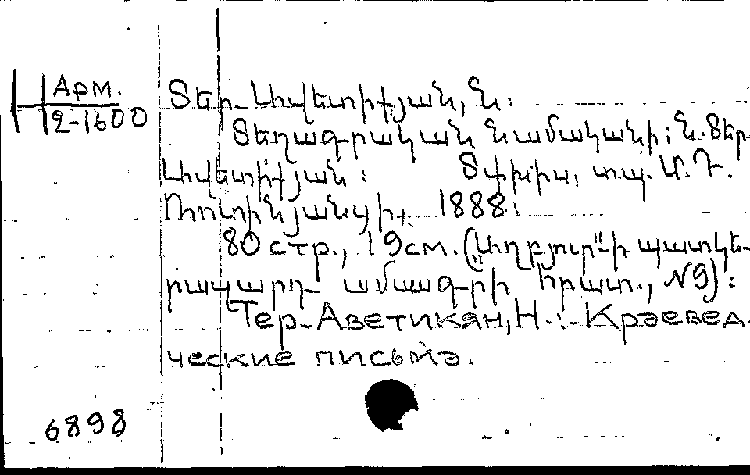 Арм.
12-1600
Տեր-Ավետիքյան, Ն.
Տեղագրական նամականի: Ն. Տեր-
Ավետիքյան: Տփխիս, տպ. Մ. Դ.
Ռոտինյանցի, 1888:
80 стр., 19 см. (Աղբյուր"-ի պատկե-
րազարդ ամսագրի հրատ., №9):
Тер-Аветикян, Н.: Краевед-
ческие письма.
6898